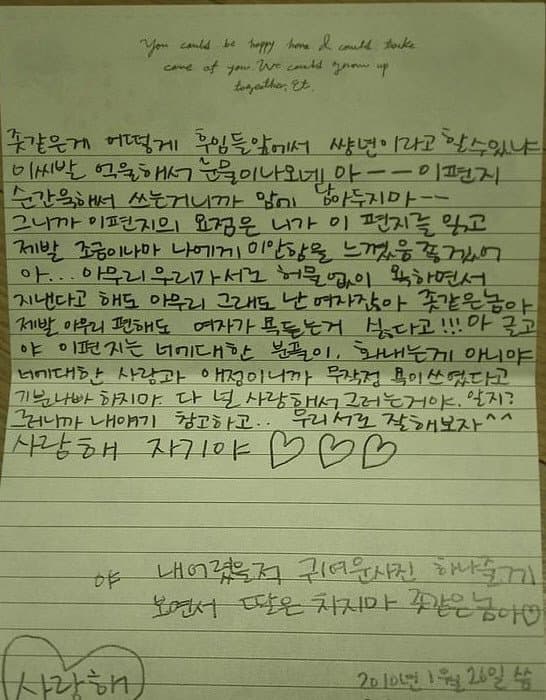 You could be happy home I could take
care of you. We could grow up
together, Et.
좆같은게 어떻게 후임들앞에서 썅년이라고 할수있냐
이씨발 억울해서 눈물이나오네 아ㅡㅡ 이편지
순간욱해서 쓰는거니까 맘에 담아두지마ㅡㅡ
그니까 이편지의 요점은 니가 이 편지를 읽고
제발 조금이나마 나에게 미안함을 느꼈음 좋겠어
아... 아무리우리가서로 허물없이 욕하면서
지낸다고 해도 아무리 그래도 난 여자잖아 좆같은놈아
제발 아무리 편해도 여자가 욕듣는거 싫다고!!! 아 글고
야 이편지는 너에대한 분풀이, 화내는게 아니야
너에대한 사랑과 애정이니까 무작정 욕이쓰였다고
기분나빠 하지마. 다 널 사랑해서 그러는거야. 알지?
그러니까 내얘기 참고하고.. 우리서로 잘해보자^^
사랑해 자기야 ♡♡♡
야 내어렸을적 귀여운사진 하나줄께
보면서 딸은 치지마 좆같은놈아♡
사랑해
2010년 1월 26일 씀